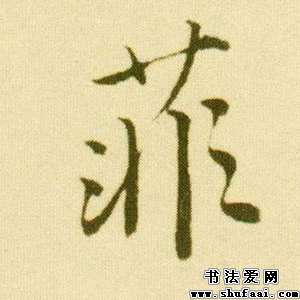 菲
书法爱网
www.shufaai.com